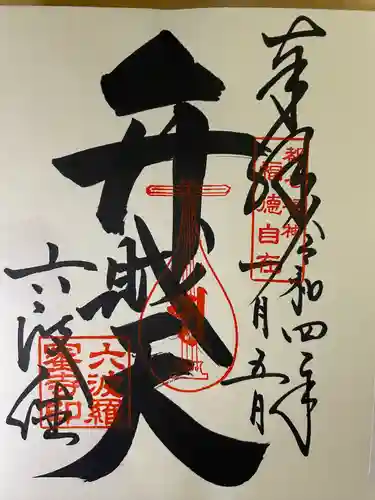 奉拝
令和四年
十一月五日
都七福神
福徳自在
弁財天
六波羅
六波羅
蜜寺印